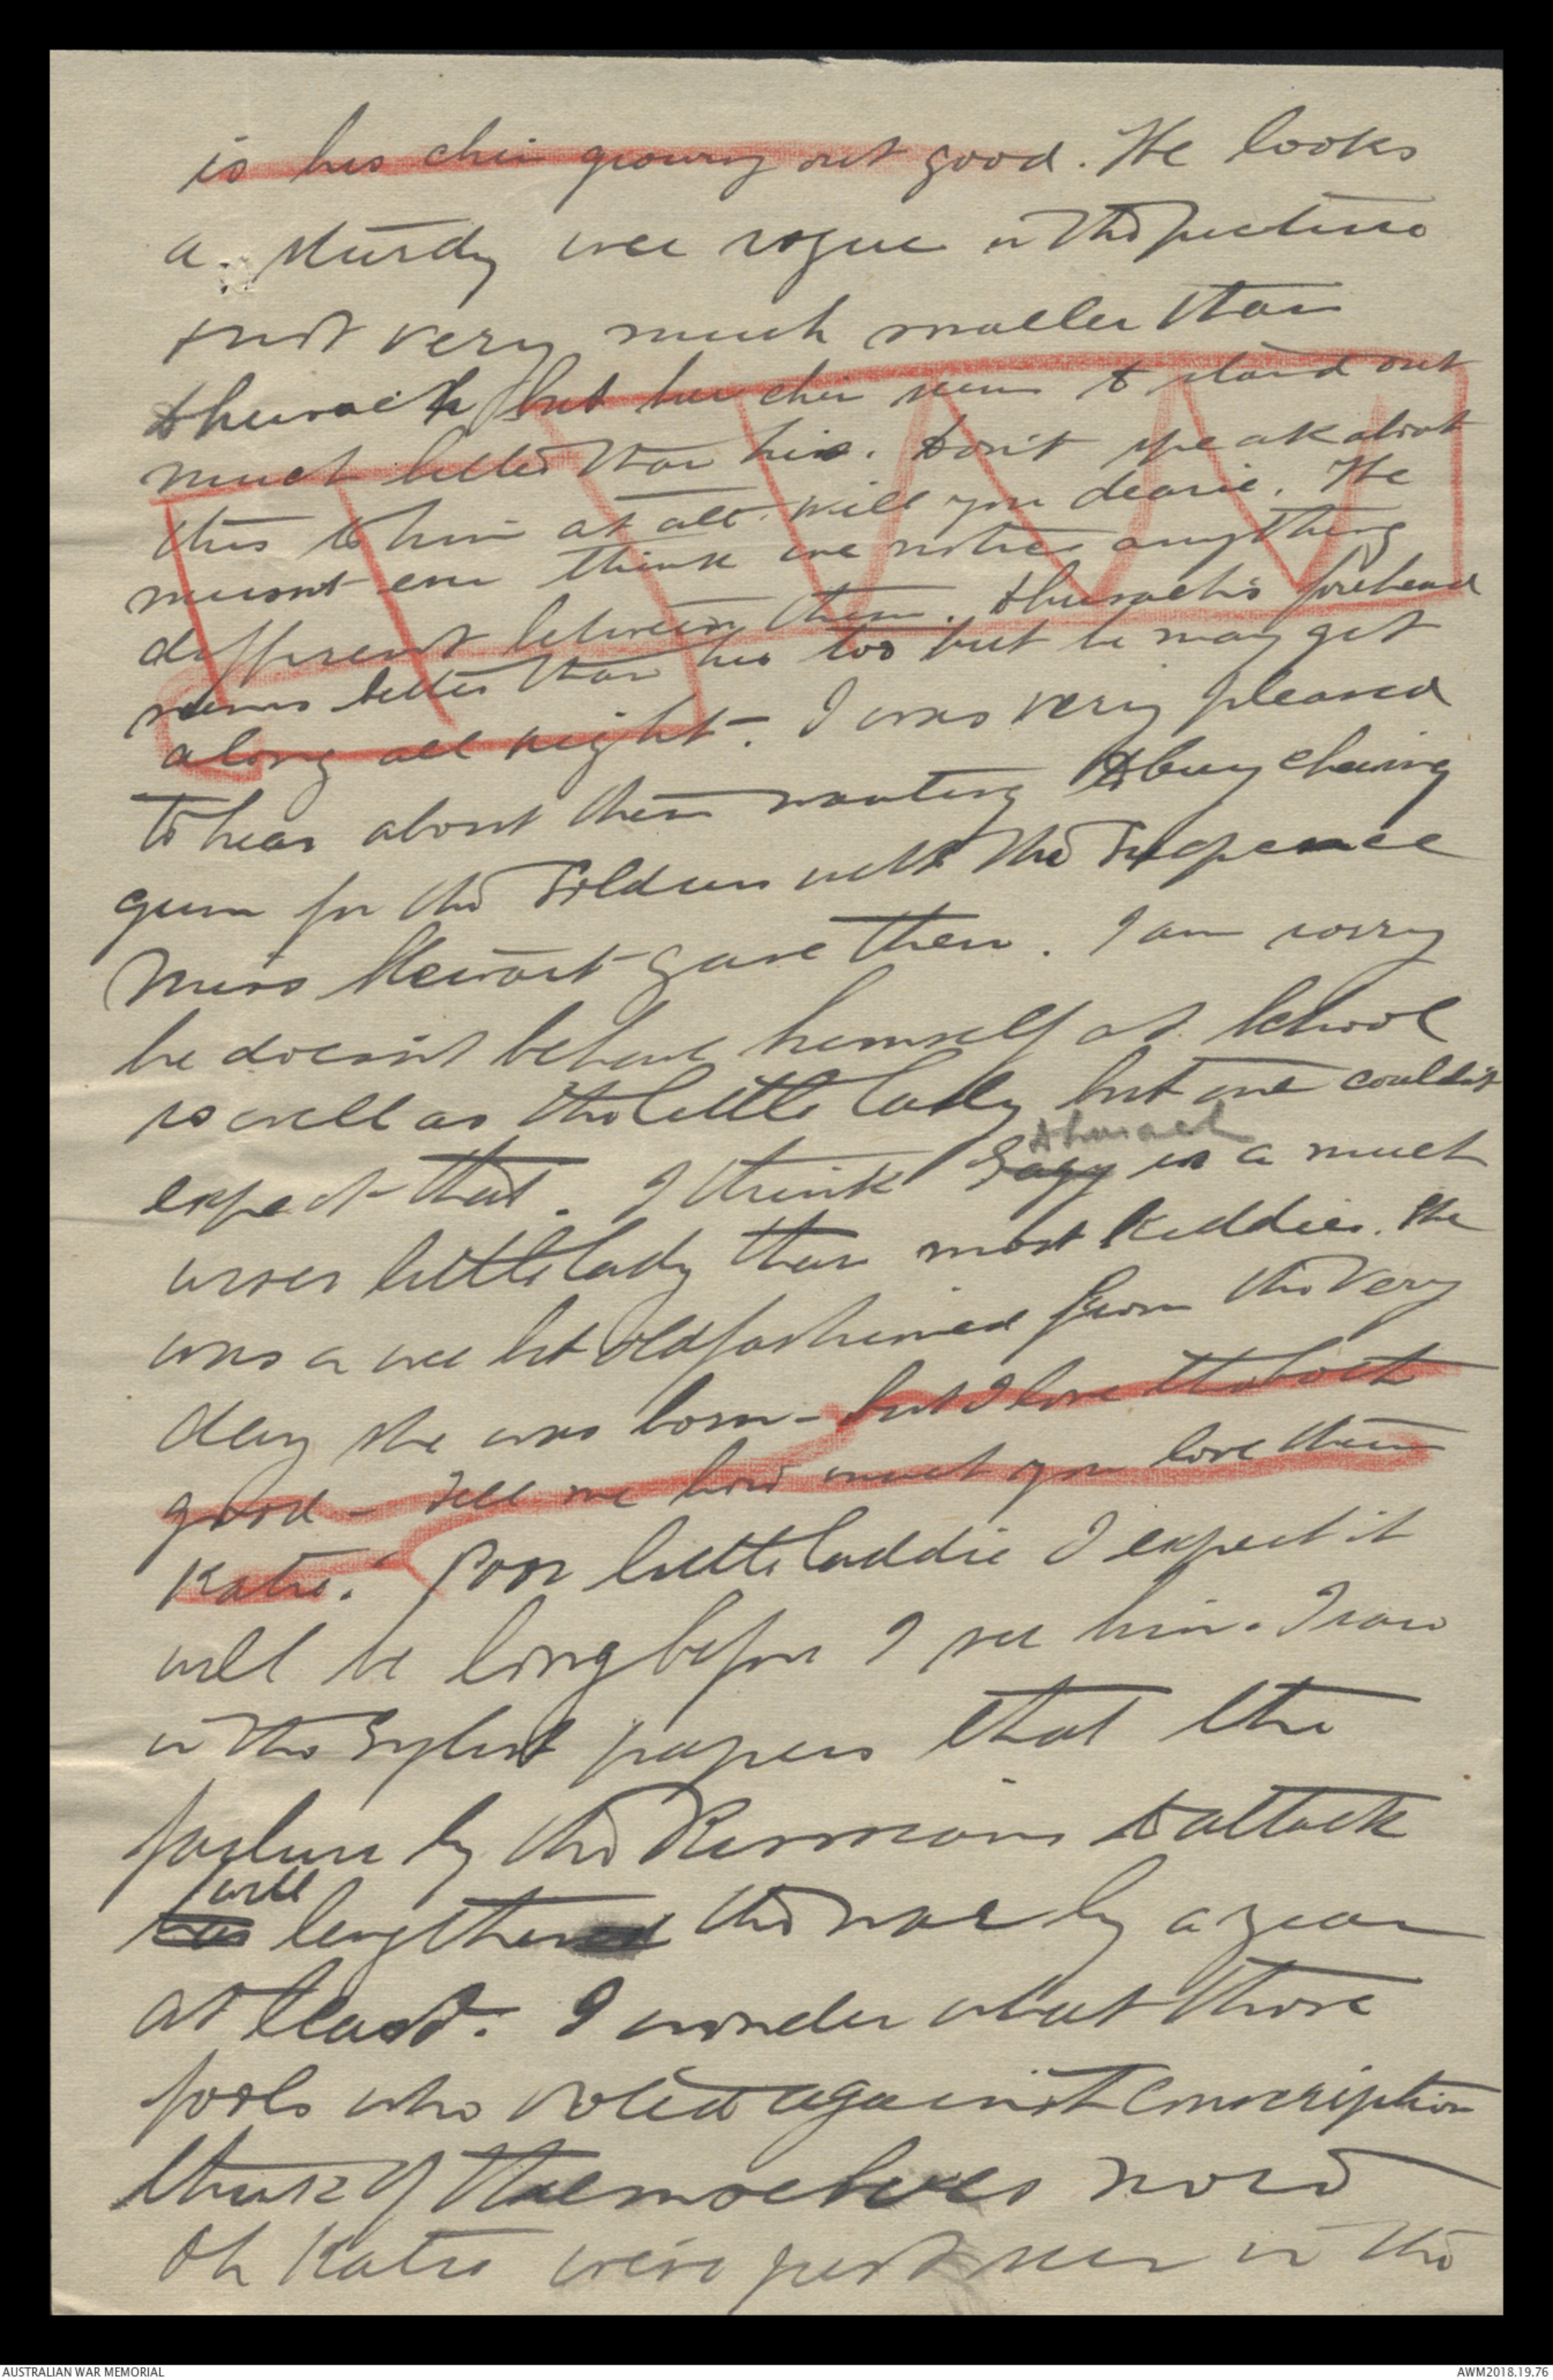 is his chin growing out good. He looks
a sturdy wee rogue in the picture
& not very much smaller than
but her chin seems to stand out
much better than his. Don't speak about
this to him at all will you dearie. He
musnt even think we notice anything
different between them. forehead
seems better than his too but he may get
along all right. I was very pleased
to hear about them wanting to buy chewing
gum for the Soldiers with the Sixpence
Miss Stewart gave them. I am sorry
he doesn't behave himself at School
as well as the little lady but one couldn't
expect that. I think is a much
wiser little lady than most kiddies. She
was a wee bit oldfashioned from the very
day she was born – but I love the both
good – Tell me how much you love them
Katie. Poor little laddie I expect it
will be long before I see him. I saw
in the Egypt papers that the
failure by the Russians to attack
will
has lengthened the war by a year
at least. I wonder what those
fools who voted against Conscription
think of themselves now
Oh Katie we're just now in the
AUSTRALIAN WAR MEMORIAL
AWM2018.19.76